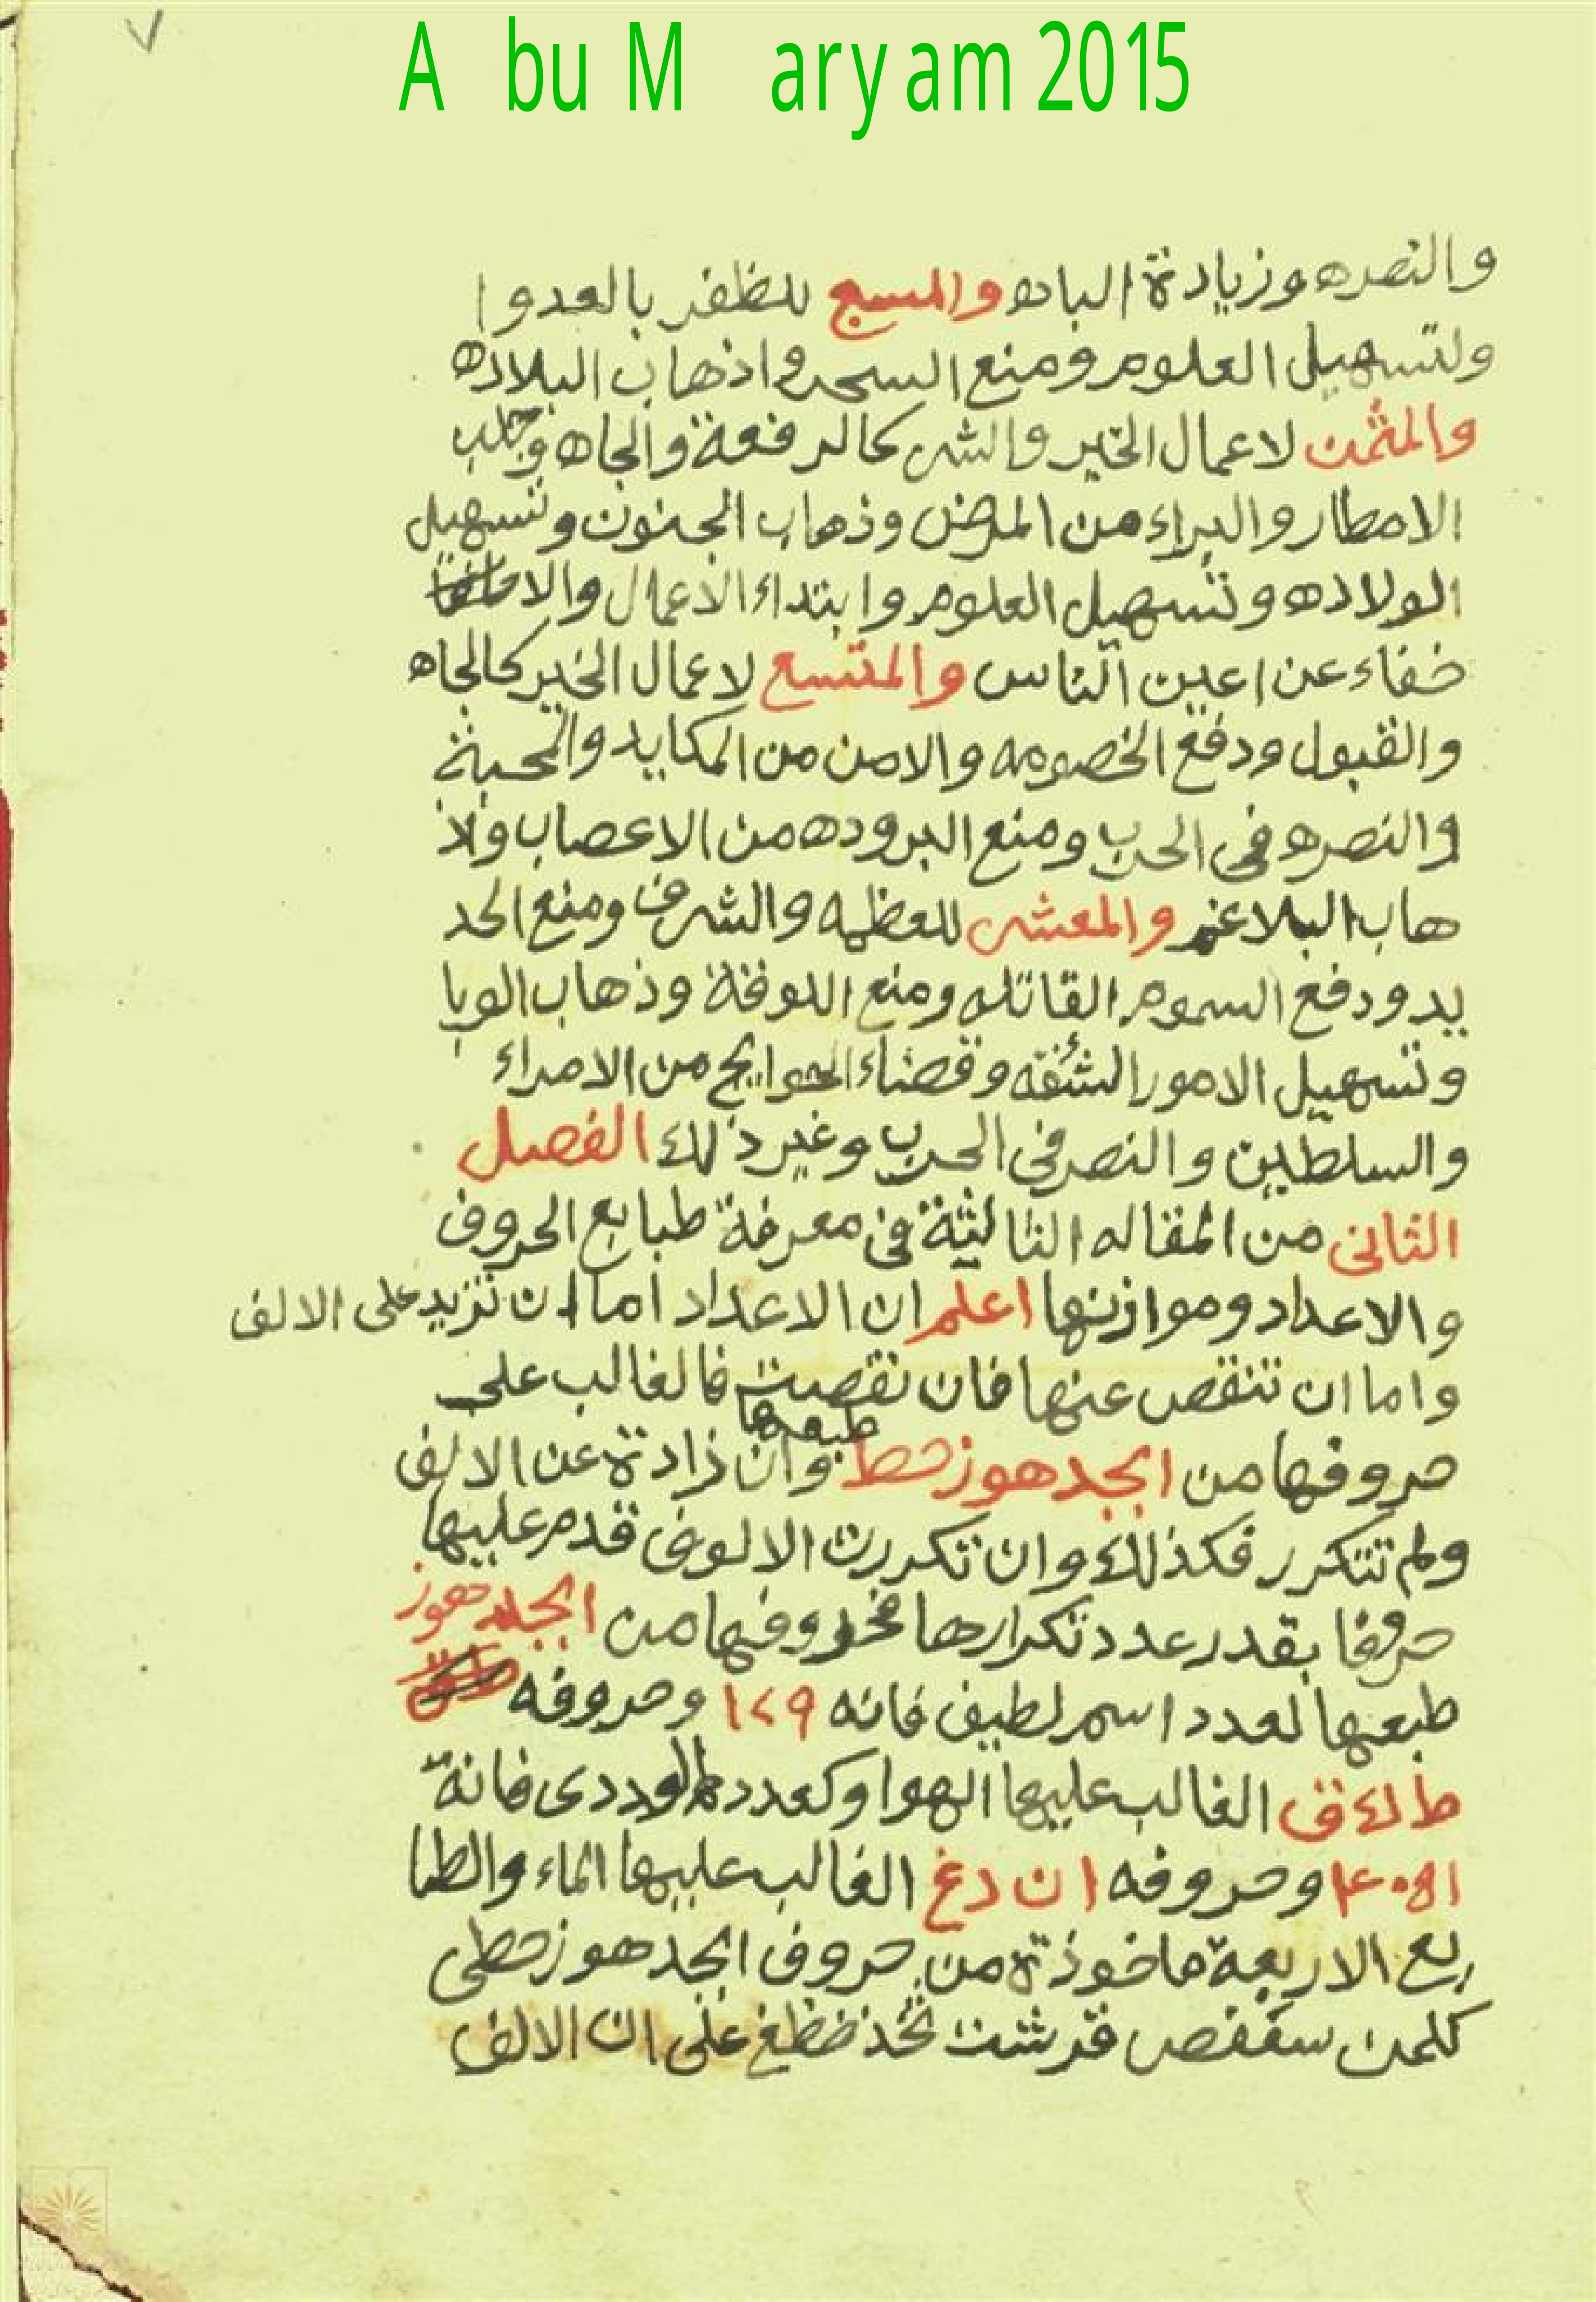 ٧
A bu M aryam 2015
والنصره وزيادة الباه والمسبع للظفر بالعدوا
ولتسهيل العلوم ومنع السحر واذهاب البلاده
والمثمن لاعمال الخير والشر كالرفعة والجاه وجلب
الامطار والبراء من المرض وذهاب الجنون وتسهيل
الولاده وتسهيل العلوم وابتداء الاعمال والا
خفاء عن اعين الناس والمتسع لاعمال الخير كالجاه
والقبول ودفع الخصومه والامن من المكايد والمحبة
والنصره فى الحرب ومنع البروده من الاعصاب ولاذ
هاب البلاغم والمعشر للعظمه والشرف ومنع الحد
يد ودفع السموم القاتله ومنع اللوقة وذهاب الوبا
وتسهيل الامور وقضاء الحوايج من الامراء
والسلطين والنصر فى الحرب وغير ذلك الفصل
الثانى من المقاله الثالثة فى معرفة طبايع الحروف
والاعداد وموازنها اعلم ان الاعداد اما ان تزيد على الالف
واما ان تنقص عنها فان نقصت فالغالب على
طبعها
حروفها من ابجد هوز حط وان زادة عن الالف
ولم تتكرر فكذلك وان تكررت الالوف قدم عليها
حروفا بقدر عدد تكرارها فحروفها من ابجد هوز
طبعها لعدد اسم لطيف فانه ١٢٩ وحروفه
ط ك ق الغالب عليها الهوا وكعدد ددى فانة
وحروفه ا ن د غ الغالب عليها الماء والطبا
يع الاربعة ماخوذة من حروف ابجد هوز حطى
كلمن سعفص قرشت ثخذ ضظغ على ان الالف